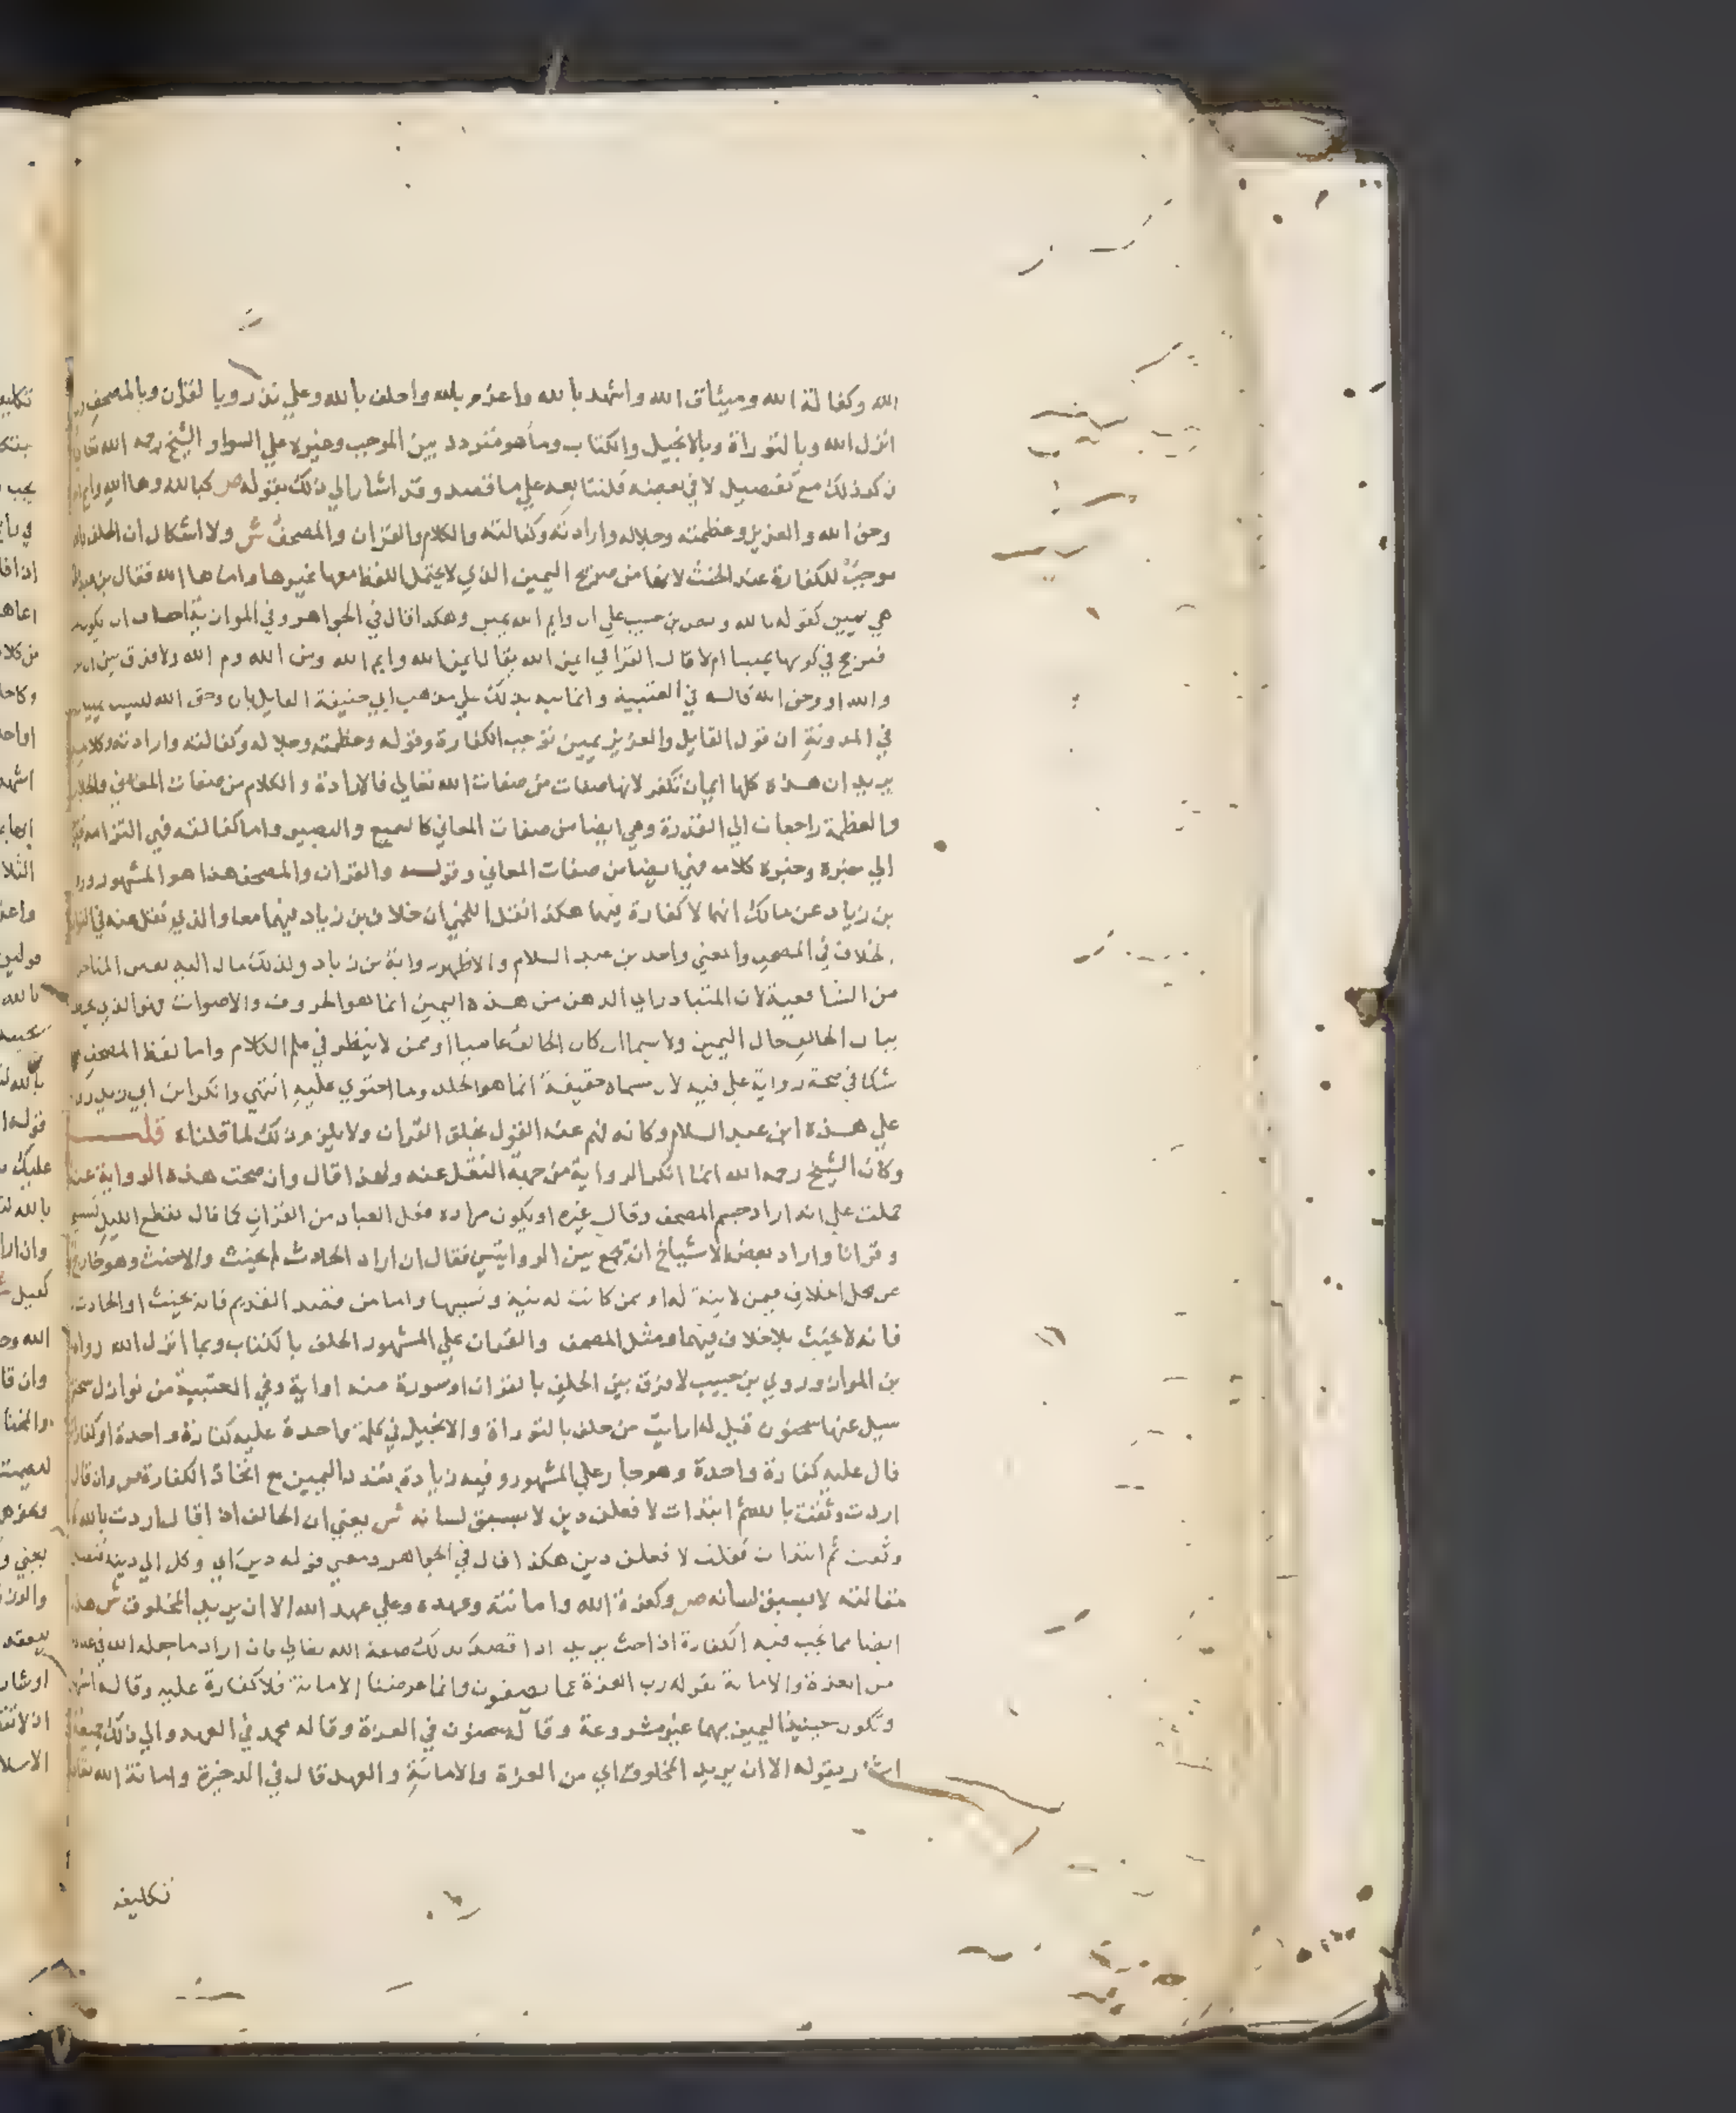 الله وكفالة الله وميثاق الله واشهد بالله واعزم بالله واحلف بالله وعلي نذر وبالقران وبالمصحف
انزل الله وبالتوراة وبالانجيل والكتاب وما هو متردد بين الموجب وغيره علي السوا والشيخ رحمه الله تعالي
ذكر ذلك مع تفصيل لا في بعضه فلنتابعه علي ما قصد وقد اشار الي ذلك بقوله ص كبالله وها الله وايم
وحق الله والعزيز وعظمته وجلاله وارادته وكفالته والكلام والقران والمصحف ش ولا اشكال ان الحلف بالله
موجب للكفارة عند الحنث لانها من صريح اليمين الذي لا يحتمل اللفظ معها غيرها واما ها الله فقال بن عبد
هي يمين كقوله بالله ونص بن حبيب علي ان وايم الله يمين وهكذا قال في الجواهر وفي الموازية اخاف ان يكون
في كونها يمينا ام لا قال القرافي ايمن الله يقال ايمن الله وايم الله ومن الله وم الله ولا فرق بين
والله او وحق الله قاله في العتبية وانما نبه بذلك علي مذهب ابي حنيفة القايل بان وحق الله ليست يمين
في المدونة ان قول القايل والعزيز يمين توجب الكفارة وقوله وعظمته وجلاله وكفالته وارادته وكلامه
يريد ان هذه كلها ايمان تكفر لانها صفات من صفات الله تعالي فالارادة والكلام من صفات المعاني والجلال
والعظمة راجعان الي القدرة وهي ايضا من صفات المعاني كالسميع والبصير واما كفالته فهي التزامه
الي خبره وخبره كلامه فهي ايضا من صفات المعاني وقوله والقران والمصحف هذا هو المشهور
بن زياد عن مالك انها لا كفارة فيهما هكذا نقل اللخمي ان خلاف بن زياد فيهما معا والذي نقل عنه في
الخلاف في المصحف والمعني واحد بن عبد السلام والاظهر رواية بن زياد ولذلك مال اليه بعض
من الشافعية لان المتبادر الي الذهن من هذه اليمين انما هو الحروف والاصوات فهو الذي
ببال الحالف حال اليمين ولا سيما ان كان الحالف عاميا او ممن لا ينظر في علم الكلام واما لفظ المصحف
شكا في صحة رواية علي فيه لان مسماه حقيقة انما هو الجلد وما احتوي عليه انتهي وانكر ابن ابي زيد
علي هذه ابن عبد السلام وكانه فهم عنه القول بخلق القران ولا يلزم ذلك لما قلناه قلت
وكان الشيخ رحمه الله انما انكر الرواية من جهة النقل عنه ولهذا قال وان صحت هذه الرواية عنه
حملت علي انه اراد جسم المصحف وقال غيره او يكون مراده فعل العباد من القران كما قال يقطع الليل تسبيحا
وقرانا واراد بعض الاشياخ ان يجمع بين الروايتين فقال ان اراد الحادث لم يحنث والا حنث وهو خارج
عن محل الخلاف فيمن لا نية له او ممن كانت له نية ونسيها واما من قصد القديم فانه يحنث او الحادث
فانه لا يحنث بلا خلاف فيهما ومثل المصحف والقران علي المشهور الحلف بالكتاب وبما انزل الله رواه
بن المواز وروي بن حبيب لا فرق بين الحلف بالقران او سورة منه او اية وفي العتبية من نوازل
سيل عنها سحنون قيل له ارايت من حلف بالتوراة والانجيل في كلمة واحدة عليه كفارة واحدة او كفارات
قال عليه كفارة واحدة وهو جار علي المشهور وفيه زيادة بتعدد اليمين مع اتحاد الكفارة ص وان قال
اردت وثقت بالله ثم ابتدات لافعلن دين لا بسبق لسانه ش يعني ان الحالف اذا قال اردت بالله
وثقت ثم ابتدات فقلت لافعلن دين هكذا قال في الجواهر ومعني قوله دين اي وكل الي دينه
مقالته لا بسبق لسانه ص وكعزة الله وامانته وعهده وعلي عهد الله الا ان يريد المخلوق ش هذا
ايضا مما يجب فيه الكفارة اذا حنث يريد اذا قصد بذلك صفة الله تعالي فان اراد ما جعله الله في
من العزة والامانة بقوله رب العزة عما يصفون وانا عرضنا الامانة فلا كفارة عليه وقاله اشهب
وتكون حينيذ اليمين بهما غير مشروعة وقاله سحنون في العزة وقاله محمد في العهد والي ذلك جميعا
اشار بقوله الا ان يريد المخلوق اي من العزة والامانة والعهد قال في الذخيرة وامانة الله تعالي
تكليفه